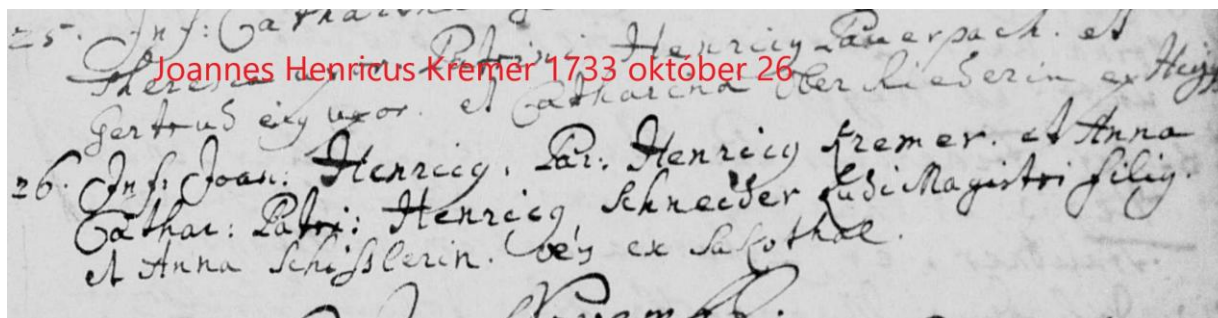 25. Inf: Cathar
Theresia Patrini Henricy Pauerpach. et
Joannes Henricus Kremer 1733 október 26
Gertrud eiy uxor. et Catharina Oberriederin ex
26. Inf: Joan: Henricy. Par: Henricy Kremer. et Anna
Cathar: Patri: Henricy Schneider Ludi Magistri filiy.
et Anna Schisslerin. oey ex Sakothal.